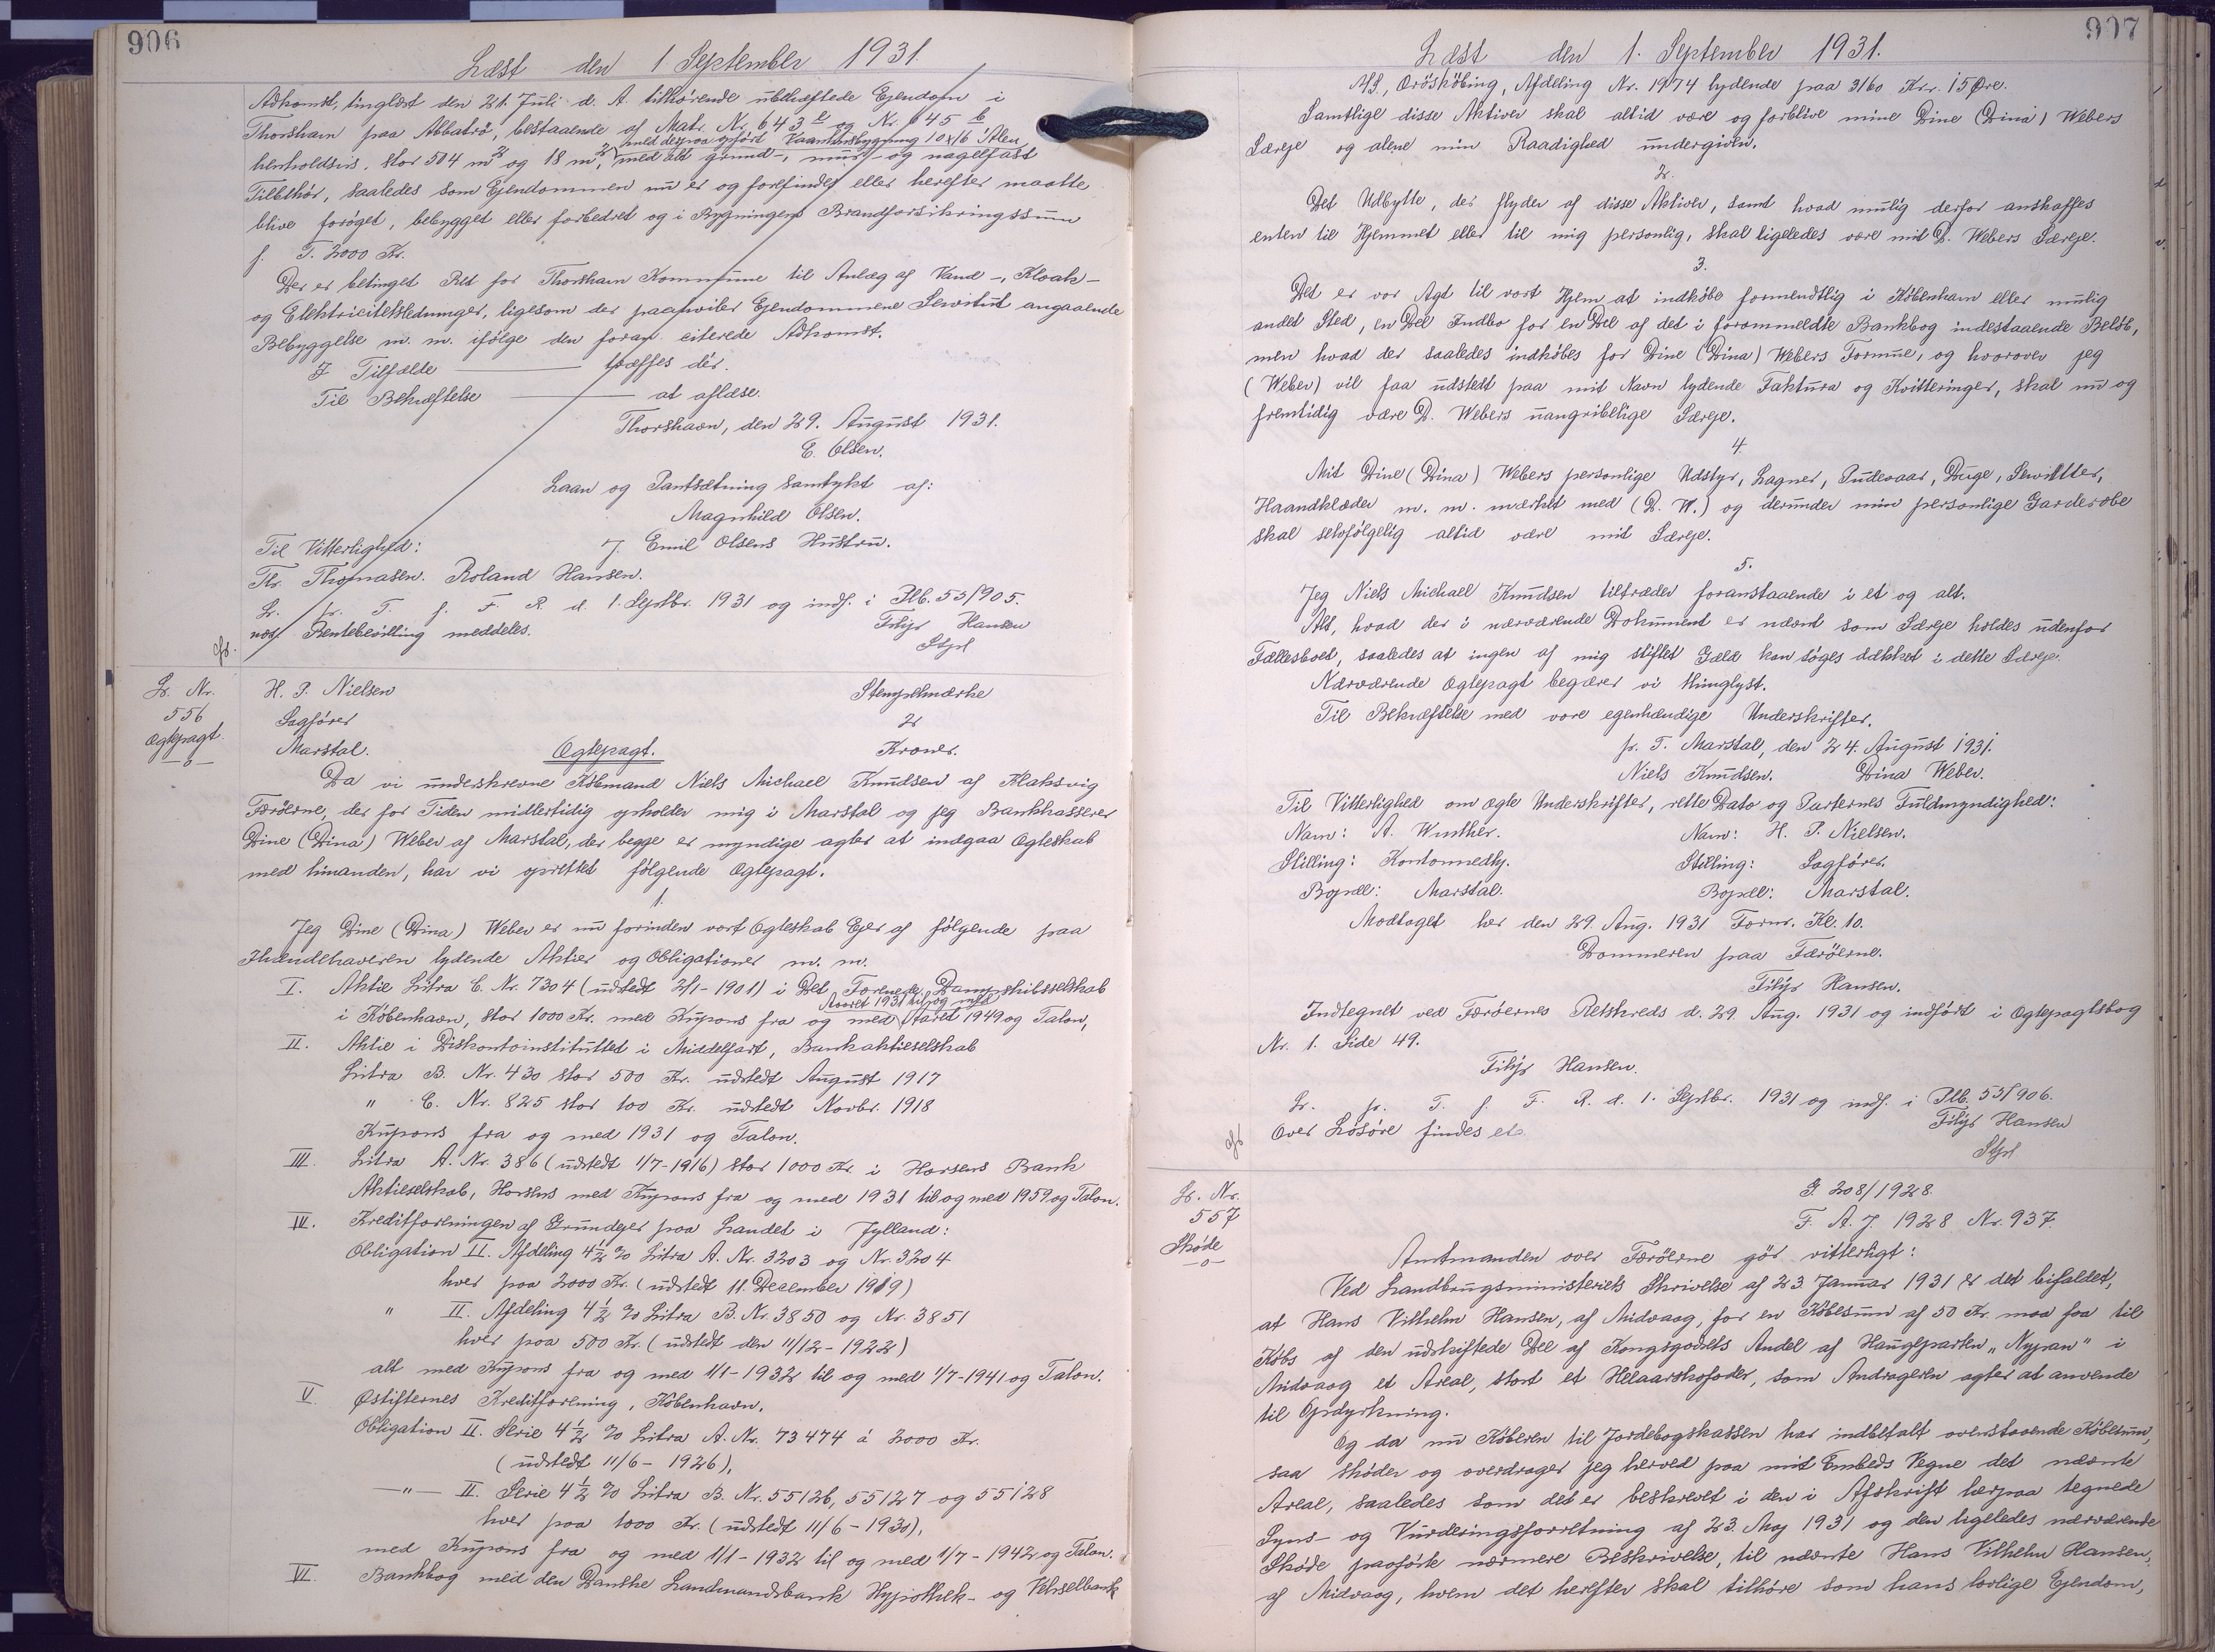 906
Læst den 1 September 1931.
Adkomst, tinglæst den 21. Juli d. A. tilhørende ubehæftede Ejendom i
Thorshavn paa Abbatrø, bestaaende af Matr. Nr. 643 e og Nr. 645 b
med derpaa opført Vaaningsbygning 10x16 Alen,
henholdsvis stor 504 m² og 18 m², med alt grund-, mur- og nagelfast
Tilbehør, saaledes som Ejendommen nu er og forefindes eller herefter maatte
blive forøget, bebygget eller forbedret og i Bygningens Brandforsikringssum
p. T. 2000 Kr.
Der er betinget Ret for Thorshavn Kommune til Anlæg af Vand-, Kloak-
og Elektricitetsledninger, ligesom der paahviler Ejendommene Servitut angaaende
Bebyggelse m. m. ifølge den foran citerede Adkomst.
I Tilfælde ——— træffes dér.
Til Bekræftelse ——— at aflæse.
Thorshavn, den 29. August 1931.
E. Olsen.
Laan og Pantsætning samtykt af:
Magnhild Olsen.
J. Emil Olsens Hustru.
Til Vitterlighed:
Th. Thomasen. Roland Hansen.
L. pr. T. f. F. R. d. 1. Septbr. 1931 og indf. i Plb. 53/905.
Rentebevilling meddeles.
Filip Hansen
Stpl
L. Nr.
556
Ægtepagt.
—o—
H. P. Nielsen
Sagfører
Marstal.
Stempelmærke
2
Kroner.
Ægtepagt.
Da vi underskrevne Købmand Niels Michael Knudsen af Klaksvig
Færöerne, der for Tiden midlertidig opholder mig i Marstal og jeg Bankkasserer
Dine (Dina) Weber af Marstal, der begge er myndige agter at indgaa Ægteskab
med hinanden, har vi oprettet følgende Ægtepagt.
1.
Jeg Dine (Dina) Weber er nu forinden vort Ægteskab Ejer af følgende paa
Ihændehaveren lydende Aktier og Obligationer m. m.
I. Aktie Litra C. Nr. 7304 (udstedt 2/1-1901) i Det Forenede Dampskibsselskab
Aaret 1931 til og med
i København, stor 1000 Kr. med Kupons fra og med Aaret 1949 og Talon,
II. Aktie i Diskontoinstituttet i Middelfart, Bankaktieselskab
Litra B. Nr. 430 stor 500 Kr. udstedt August 1917
" C. Nr. 825 stor 100 Kr. udstedt Novbr. 1918
Kupons fra og med 1931 og Talon.
III. Litra A. Nr. 386 (udstedt 1/7-1916) stor 1000 Kr. i Horsens Bank
Aktieselskab, Horsens med Kupons fra og med 1931 til og med 1959 og Talon.
IV. Kreditforeningen af Grundejer paa Landet i Jylland:
Obligation II. Afdeling 4½ % Litra A. Nr. 3203 og Nr. 3204
hver paa 2000 Kr. (udstedt 11. December 1919)
" II. Afdeling 4½ % Litra B. Nr. 3850 og Nr. 3851
hver paa 500 Kr. (udstedt den 11/12-1922)
alt med Kupons fra og med 1/1-1932 til og med 1/7-1941 og Talon.
V. Østifternes Kreditforening, København.
Obligation II. Serie 4½ % Litra A. Nr. 73474 á 2000 Kr.
(udstedt 11/6-1926),
—"— II. Serie 4½ % Litra B. Nr. 55126, 55127 og 55128
hver paa 1000 Kr. (udstedt 11/6-1930),
med Kupons fra og med 1/1-1932 til og med 1/7-1942 og Talon.
VI. Bankbog med den Danske Landmandsbank Hypothek- og Vekselbank
907
Læst den 1. September 1931.
A/S., Ærøskøbing, Afdeling Nr. 1974 lydende paa 3160 Kr. 15 Øre.
Samtlige disse Aktiver skal altid være og forblive mine Dine (Dina) Webers
Særeje og alene min Raadighed undergiven.
2.
Det Udbytte, der flyder af disse Aktiver, samt hvad mulig derfor anskaffes
enten til Hjemmet eller til mig personlig, skal ligeledes være mit D. Webers Særeje.
3.
Det er vor Agt til vort Hjem at indkøbe formentlig i København eller mulig
andet Sted, en Del Indbo for en Del af det i forommeldte Bankbog indestaaende Beløb,
men hvad der saaledes indkøbes for Dine (Dina) Webers Formue, og hvorover jeg
(Weber) vil faa udstedt paa mit Navn lydende Faktura og Kvitteringer, skal nu og
fremtidig være D. Webers uangribelige Særeje.
4.
Mit Dine (Dina) Webers personlige Udstyr, Lagner, Pudevaar, Duge, Servietter,
Haandklæder m. m. mærket med (D. W.) og derunder min personlige Garderobe
skal selvfølgelig altid være mit Særeje.
5.
Jeg Niels Michael Knudsen tiltræder foranstaaende i et og alt.
Alt, hvad der i nærværende Dokument er nævnt som Særeje holdes udenfor
Fællesboet, saaledes at ingen af mig stiftet Gæld kan søges dækket i dette Særeje.
Nærværende Ægtepagt begærer vi thinglyst.
Til Bekræftelse med vore egenhændige Underskrifter.
p. T. Marstal, den 24. August 1931.
Niels Knudsen. Dina Weber.
Til Vitterlighed om ægte Underskrifter, rette Dato og Parternes Fuldmyndighed:
Navn: A. Winther. Navn: H. P. Nielsen.
Stilling: Kontormedhj. Stilling: Sagfører.
Bopæl: Marstal. Bopæl: Marstal.
Modtaget her den 29. Aug. 1931 Form. Kl. 10.
Dommeren paa Færöerne.
Filip Hansen.
Indtegnet ved Færöernes Retskreds d. 29. Aug. 1931 og indført i Ægtepagtsbog
Nr. 1. Side 49.
Filip Hansen.
L. pr. T. f. F. R. d. 1. Septbr. 1931 og indf. i Plb. 53/906.
Over Løsøre findes ei.
Filip Hansen
Stpl
L. Nr.
557
Skøde
—o—
J. 208/1928.
F. A. J. 1928 Nr. 937.
Amtmanden over Færöerne gör vitterligt:
Ved Landbrugsministeriets Skrivelse af 23 Januar 1931 er det bifaldet,
at Hans Vilhelm Hansen, af Midvaag, for en Købesum af 50 Kr. maa faa til
Købs af den udskiftede Del af Kongsgodsets Andel af Haugeparten "Nypan" i
Midvaag et Areal, stort et Helaarskofoder, som Andrageren agter at anvende
til Opdyrkning.
Og da nu Køberen til Jordebogskassen har indbetalt ovenstaaende Købesum,
saa skøder og overdrager jeg herved paa mit Embeds Vegne det nævnte
Areal, saaledes som det er beskrevet i den i Afskrift herpaa tegnede
Syns- og Vurderingsforretning af 23. Maj 1931 og den ligeledes nærværende
Skøde paaførte nærmere Beskrivelse, til nævnte Hans Vilhelm Hansen,
af Midvaag, hvem det herefter skal tilhøre som hans lovlige Ejendom,